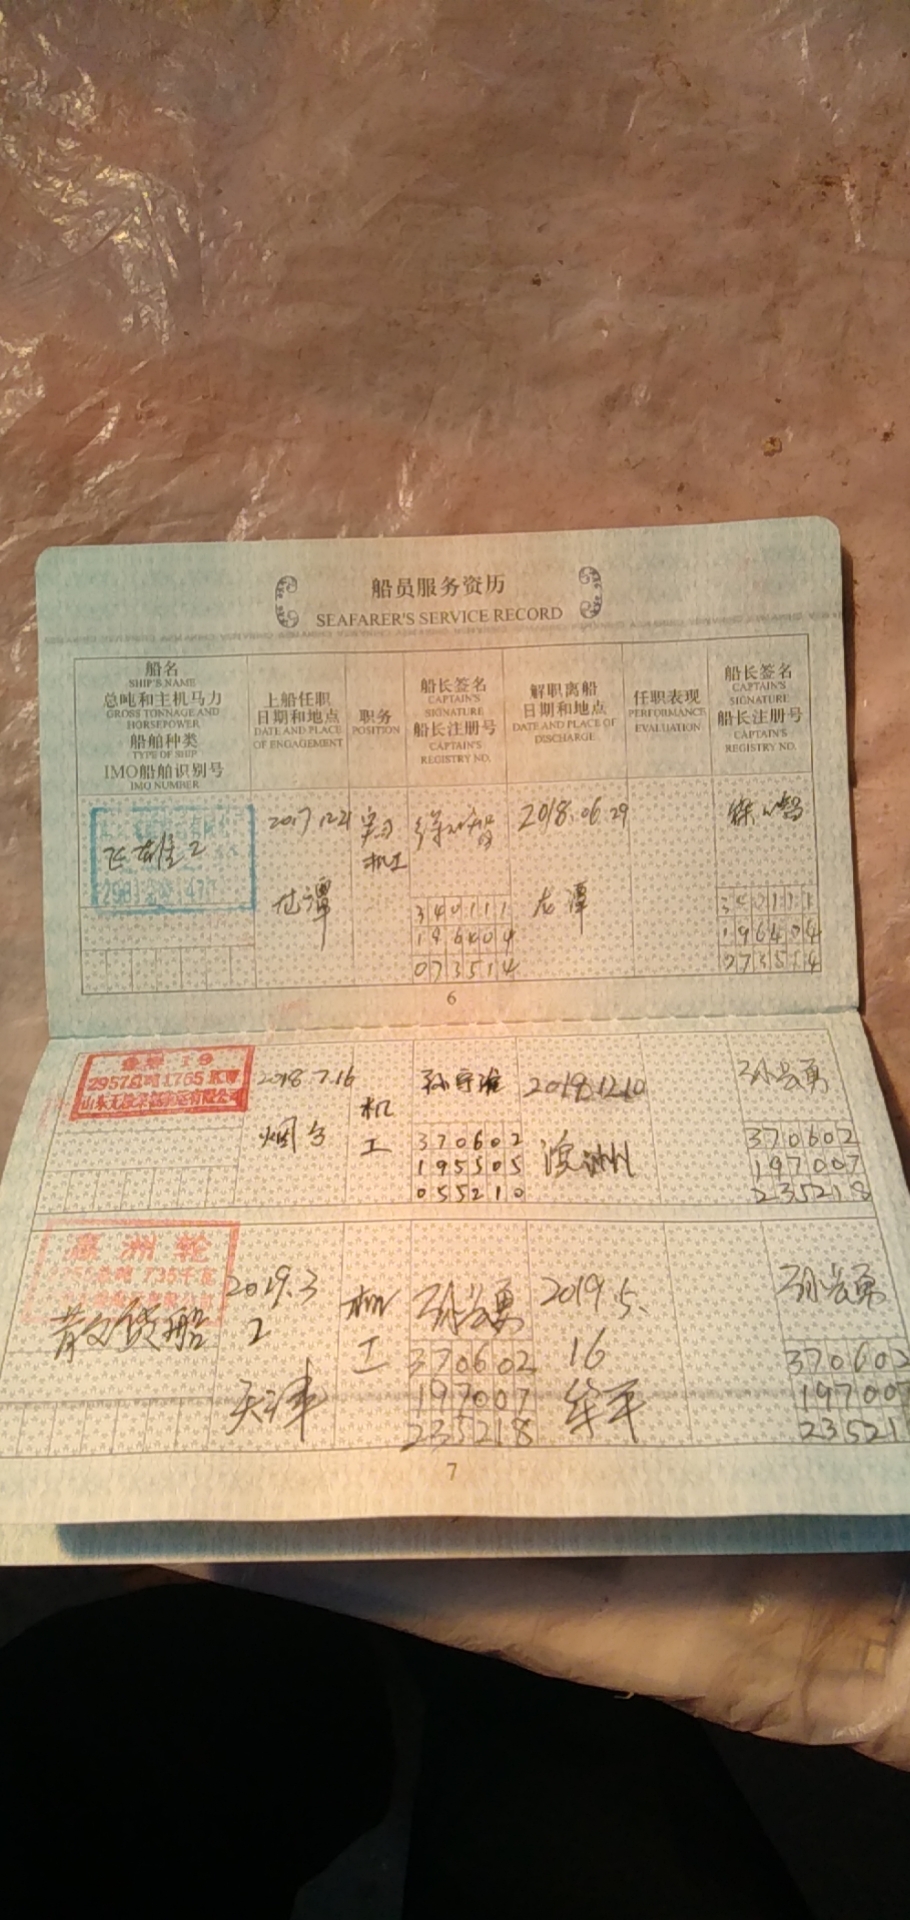 船员服务资历
SEAFARER'S SERVICE RECORD
船名
SHIP'S NAME
总吨和主机马力
GROSS TONNAGE AND
HORSEPOWER
船舶种类
TYPE OF SHIP
IMO船舶识别号
IMO NUMBER
上船任职
日期和地点
DATE AND PLACE
OF ENGAGEMENT
职务
POSITION
船长签名
CAPTAIN'S
SIGNATURE
船长注册号
CAPTAIN'S
REGISTRY NO.
解职离船
日期和地点
DATE AND PLACE OF
DISCHARGE
任职表现
PERFORMANCE
EVALUATION
船长签名
CAPTAIN'S
SIGNATURE
船长注册号
CAPTAIN'S
REGISTRY NO.
飞雄2
龙潭
实习
机工
340111
196404
073514
2018.06.29
龙潭
6
2957总吨1765
2018.7.16
烟台
机
工
370602
195505
055210
2018.12.10
滨洲
370602
197007
235218
洲轮
散货船
2019.3
2
天津
机
工
370602
197007
235218
2019.5.
16
370602
197007
23521
7